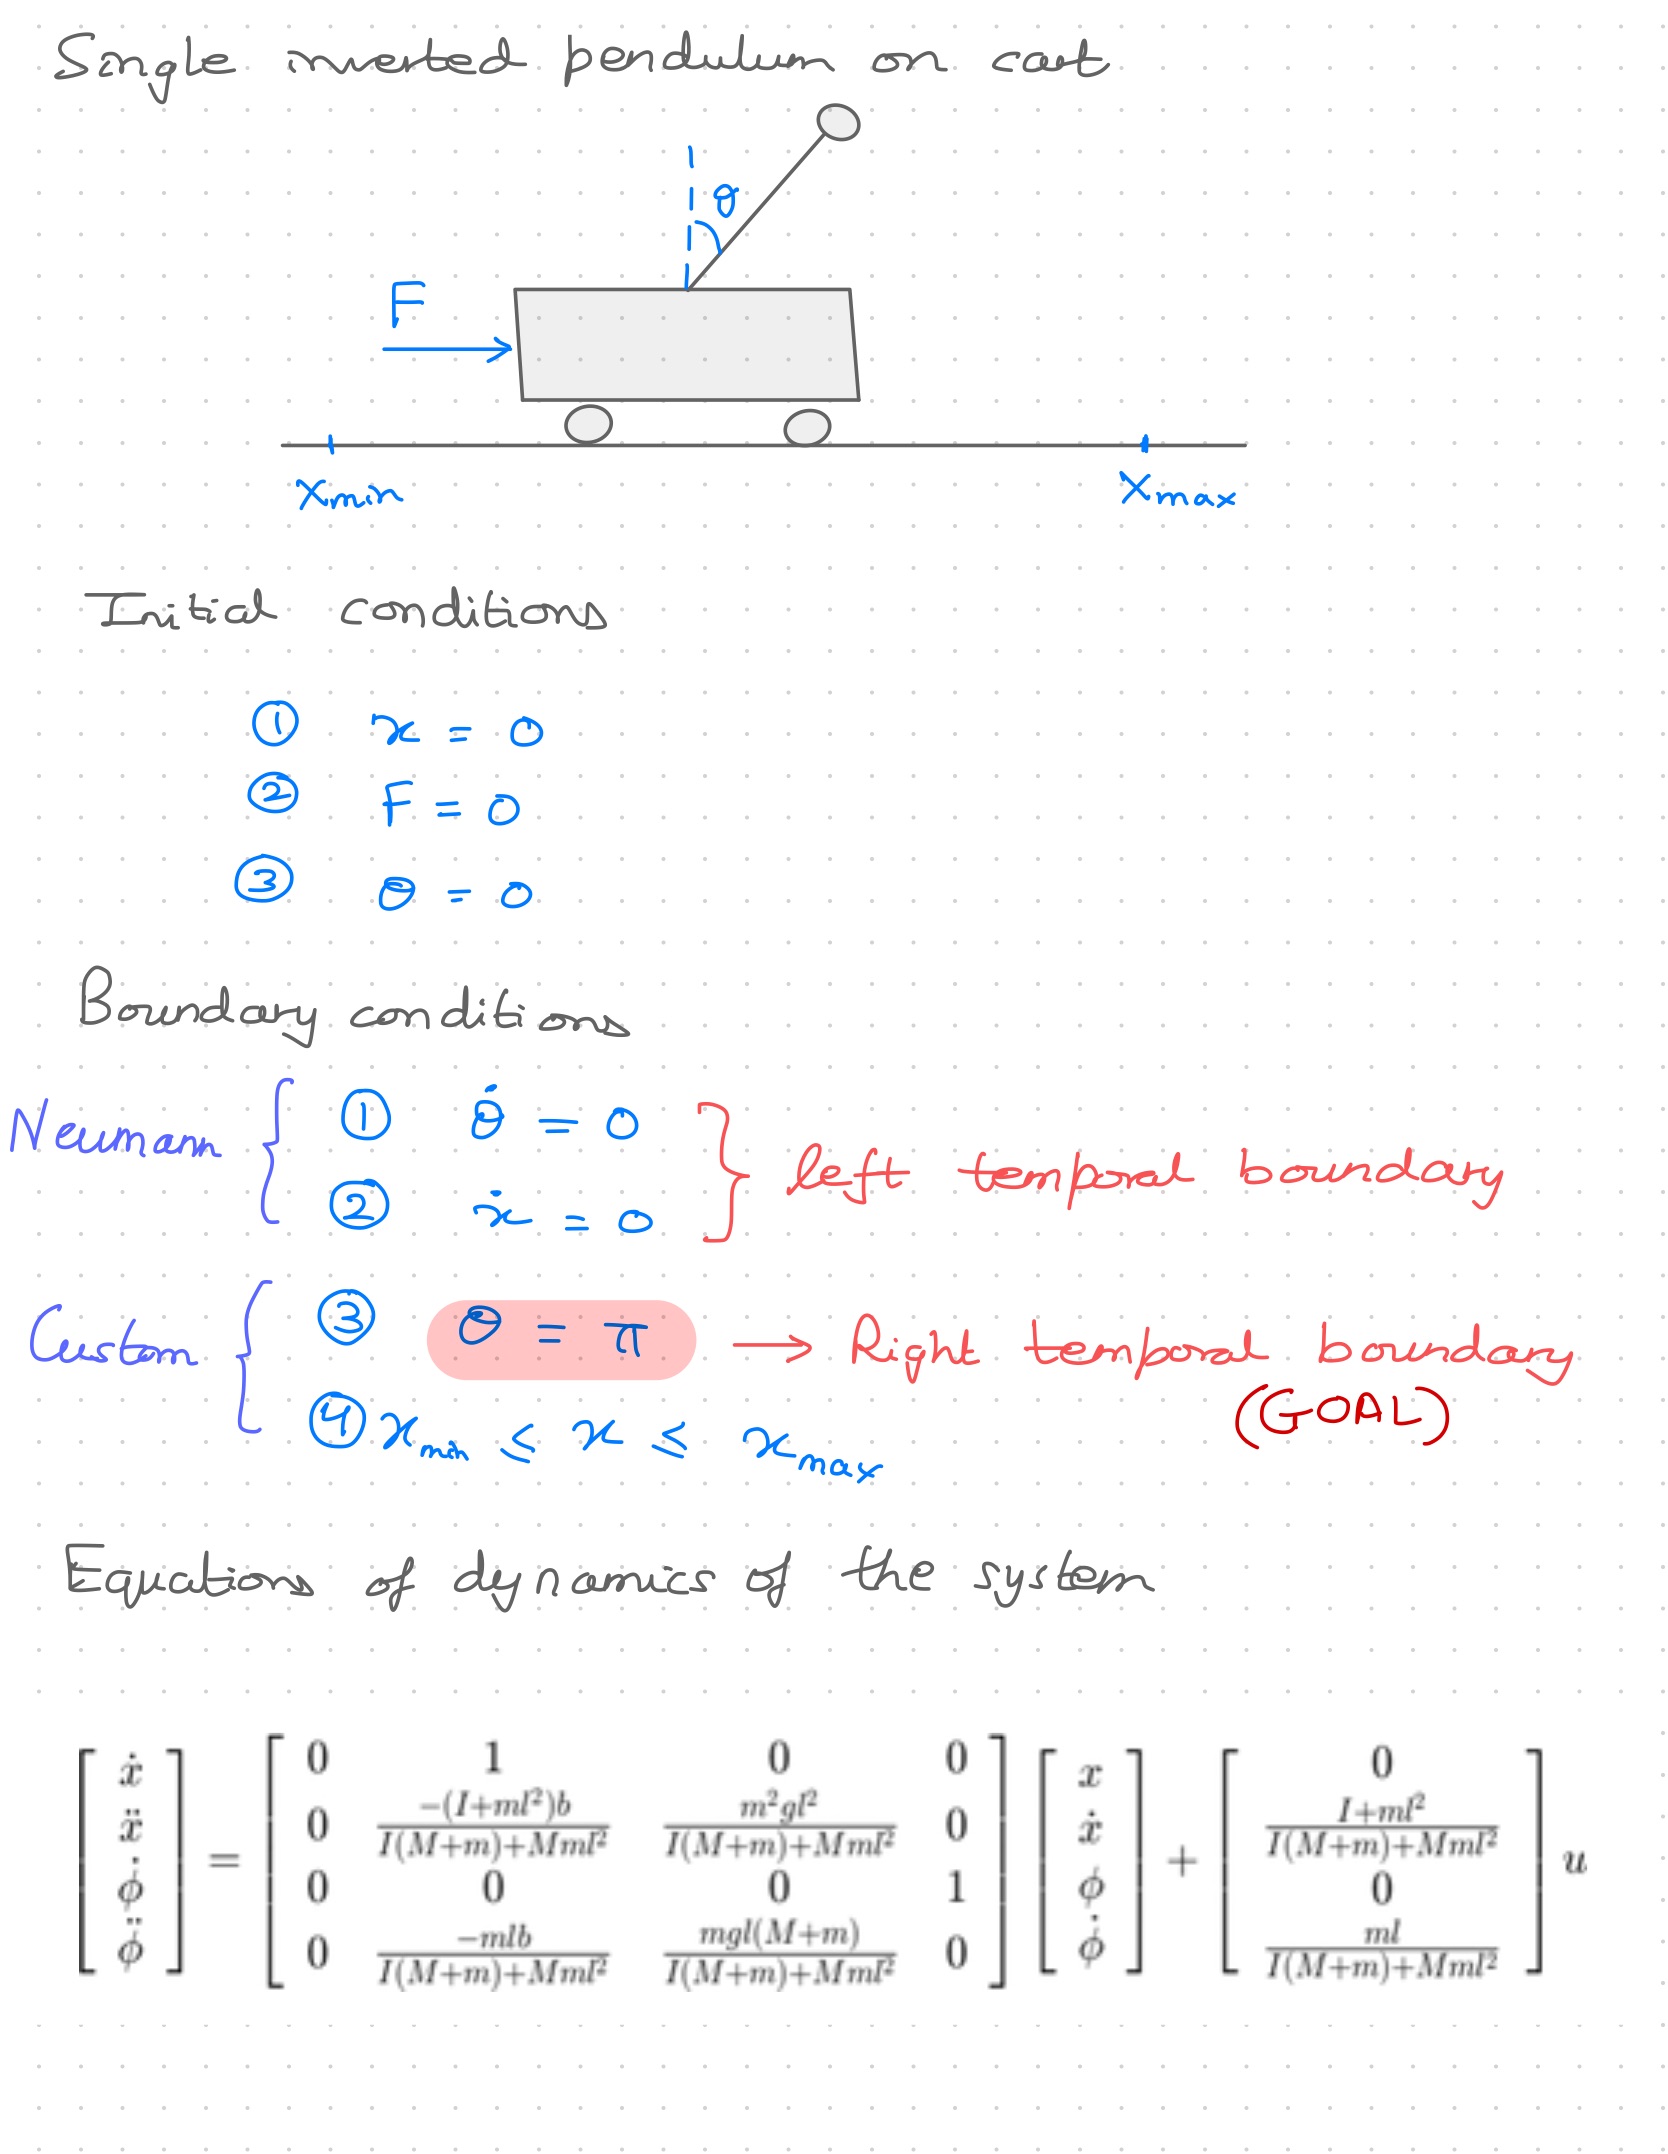 Single inverted pendulum on cart
θ
F
Xmin Xmax
Initial conditions
① x = 0
② F = 0
③ θ = 0
Boundary conditions
Neumann { ① θ̇ = 0 } left temporal boundary
② ẋ = 0
Custom { ③ θ = π → Right temporal boundary
(GOAL)
④ xmin ≤ x ≤ xmax
Equations of dynamics of the system
[ẋ; ẍ; ϕ̇; ϕ̈] = [0 1 0 0; 0 −(I+ml²)b/(I(M+m)+Mml²) m²gl²/(I(M+m)+Mml²) 0; 0 0 0 1; 0 −mlb/(I(M+m)+Mml²) mgl(M+m)/(I(M+m)+Mml²) 0] [x; ẋ; ϕ; ϕ̇] + [0; (I+ml²)/(I(M+m)+Mml²); 0; ml/(I(M+m)+Mml²)] u